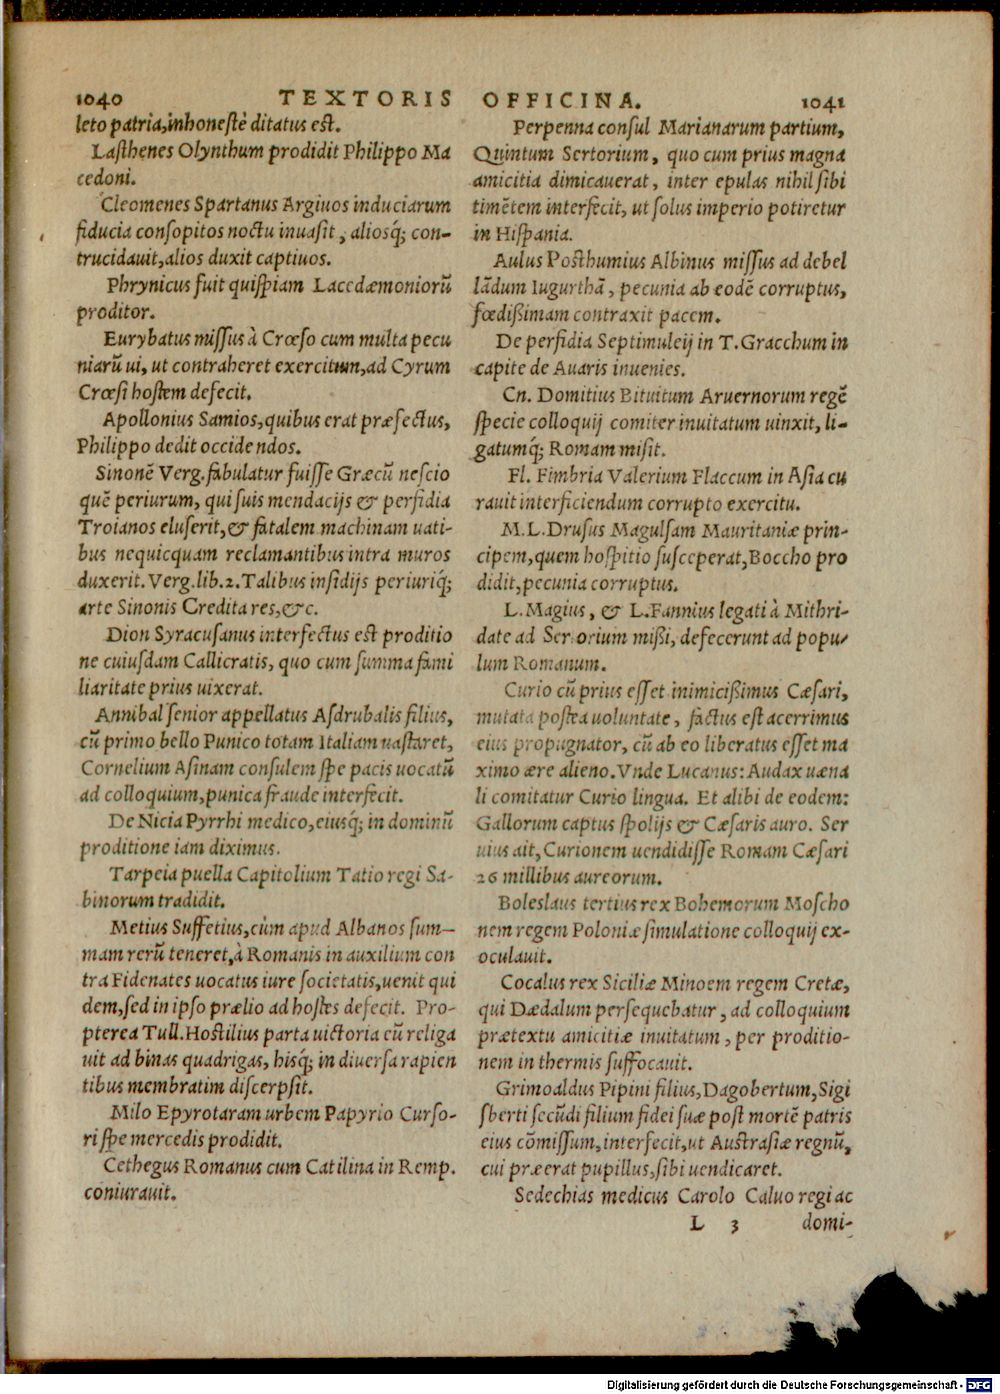 1040 TEXTORIS
leto patria, inhonestè ditatus est.
Lasthenes Olynthum prodidit Philippo Ma
cedoni.
Cleomenes Spartanus Argiuos induciarum
fiducia consopitos noctu inuasit, aliosq; con-
trucidauit, alios duxit captiuos.
Phrynicus fuit quispiam Lacedæmoniorũ
proditor.
Eurybatus missus à Crœso cum multa pecu
niarũ ui, ut contraheret exercitum, ad Cyrum
Crœsi hostem defecit.
Apollonius Samios, quibus erat præfectus,
Philippo dedit occidendos.
Sinonẽ Verg. fabulatur fuisse Græcũ nescio
quẽ periurum, qui suis mendacijs & perfidia
Troianos eluserit, & fatalem machinam uati-
bus nequicquam reclamantibus intra muros
duxerit. Verg. lib. 2. Talibus insidijs periuriq;
arte Sinonis Credita res, &c.
Dion Syracusanus interfectus est proditio
ne cuiusdam Callicratis, quo cum summa fami
liaritate prius uixerat.
Annibal senior appellatus Asdrubalis filius,
cũ primo bello Punico totam Italiam uastaret,
Cornelium Asinam consulem spe pacis uocatũ
ad colloquium, punica fraude interfecit.
De Nicia Pyrrhi medico, eiusq; in dominũ
proditione iam diximus.
Tarpeia puella Capitolium Tatio regi Sa-
binorum tradidit.
Metius Suffetius, cùm apud Albanos sum-
mam rerũ teneret, à Romanis in auxilium con
tra Fidenates uocatus iure societatis, uenit qui
dem, sed in ipso prælio ad hostes defecit. Pro-
pterea Tull. Hostilius parta uictoria eũ religa
uit ad binas quadrigas, hisq; in diuersa rapien
tibus membratim discerpsit.
Milo Epyrotaram urbem Papyrio Curso-
ri spe mercedis prodidit.
Cethegus Romanus cum Catilina in Remp.
coniurauit.
OFFICINA. 1041
Perpenna consul Marianarum partium,
Quintum Sertorium, quo cum prius magna
amicitia dimicauerat, inter epulas nihil sibi
timẽtem interfecit, ut solus imperio potiretur
in Hispania.
Aulus Posthumius Albinus missus ad debel
lãdum Iugurthã, pecunia ab eodẽ corruptus,
fœdißimam contraxit pacem.
De perfidia Septimuleij in T. Gracchum in
capite de Auaris inuenies.
Cn. Domitius Bituitum Aruernorum regẽ
specie colloquij comiter inuitatum uinxit, li-
gatumq́; Romam misit.
Fl. Fimbria Valerium Flaccum in Asia cu
rauit interficiendum corrupto exercitu.
M. L. Drusus Magulsam Mauritaniæ prin-
cipem, quem hospitio susceperat, Boccho pro
didit, pecunia corruptus.
L. Magius, & L. Fannius legati à Mithri-
date ad Sertorium mißi, defecerunt ad popu-
lum Romanum.
Curio cũ prius esset inimicißimus Cæsari,
mutata postea uoluntate, factus est acerrimus
eius propugnator, cũ ab eo liberatus esset ma
ximo ære alieno. Vnde Lucanus: Audax uæna
li comitatur Curio lingua. Et alibi de eodem:
Gallorum captus spolijs & Cæsaris auro. Ser
uius ait, Curionem uendidisse Romam Cæsari
26 millibus aureorum.
Boleslaus tertius rex Bohemorum Moscho
nem regem Poloniæ simulatione colloquij ex-
oculauit.
Cocalus rex Siciliæ Minoem regem Cretæ,
qui Dædalum persequebatur, ad colloquium
prætextu amicitiæ inuitatum, per proditio-
nem in thermis suffocauit.
Grimoaldus Pipini filius, Dagobertum, Sigi
sberti secũdi filium fidei suæ post mortẽ patris
eius cõmissum, interfecit, ut Austrasiæ regnũ,
cui præerat pupillus, sibi uendicaret.
Sedechias medicus Carolo Caluo regi ac
L 3 domi-
Digitalisierung gefördert durch die Deutsche Forschungsgemeinschaft - DFG